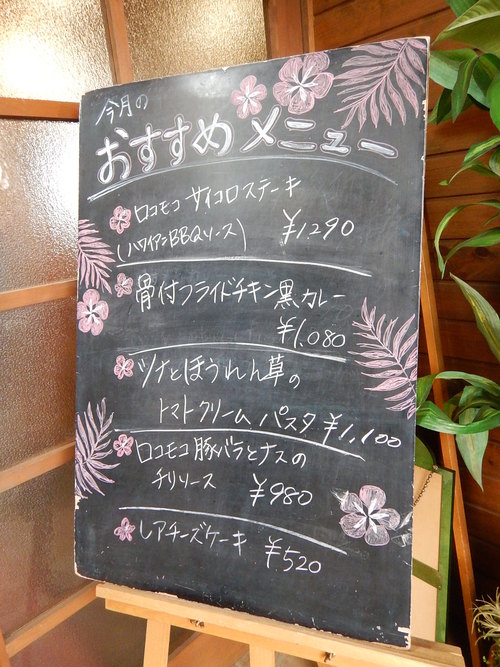 今月の
おすすめ メニュー
ロコモコ サイコロステーキ
(ハワイアンBBQソース) ¥1,290
骨付フライドチキン黒カレー
¥1,080
ツナとほうれん草の
トマトクリームパスタ ¥1,100
ロコモコ豚バラとナスの
チリソース ¥980
レアチーズケーキ ¥520